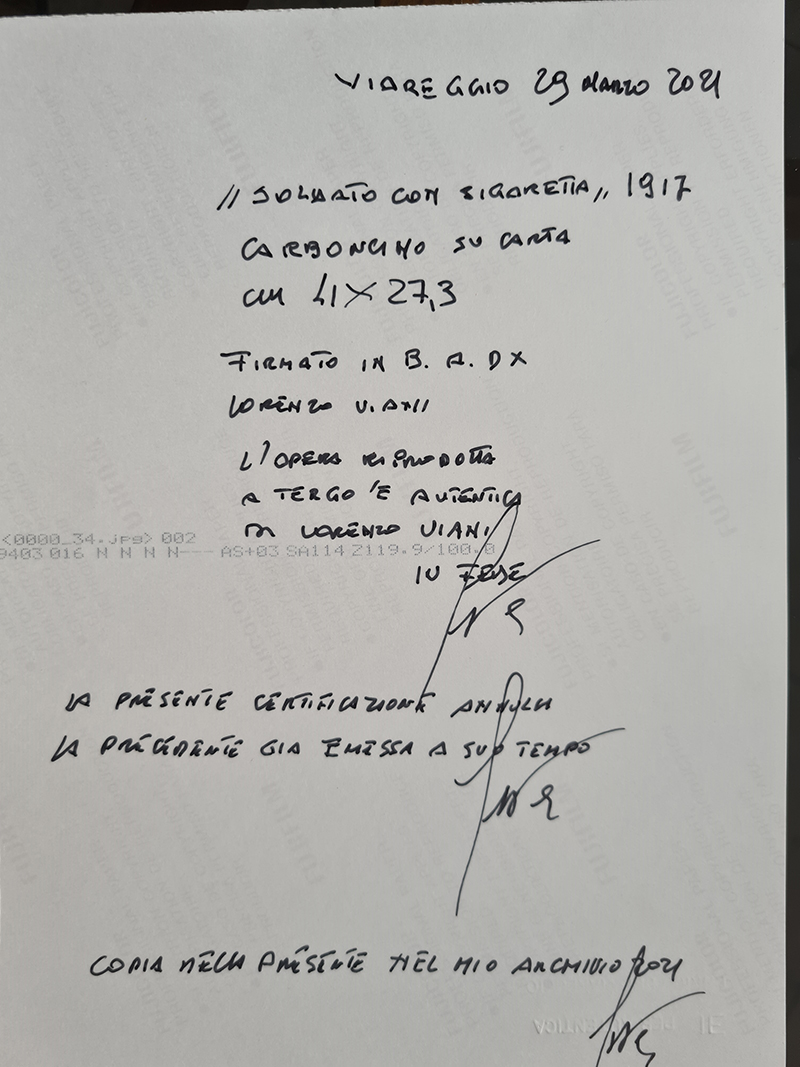 VIAREGGIO 29 MARZO 2021
"SOLDATO CON SIGARETTA" 1917
CARBONCINO SU CARTA
CM 41X27,3
FIRMATO IN B. A. DX
LORENZO VIANI
L'OPERA RIPRODOTTA
A TERGO E' AUTENTICA
DI LORENZO VIANI
<0000_34.jpg> 002
9403 016 N N N N--- AS+03 SA114 Z119.9/100.0
IN FEDE
LA PRESENTE CERTIFICAZIONE ANNULLA
LA PRECEDENTE GIA EMESSA A SUO TEMPO
COPIA DELLA PRESENTE NEL MIO ARCHIVIO 2021